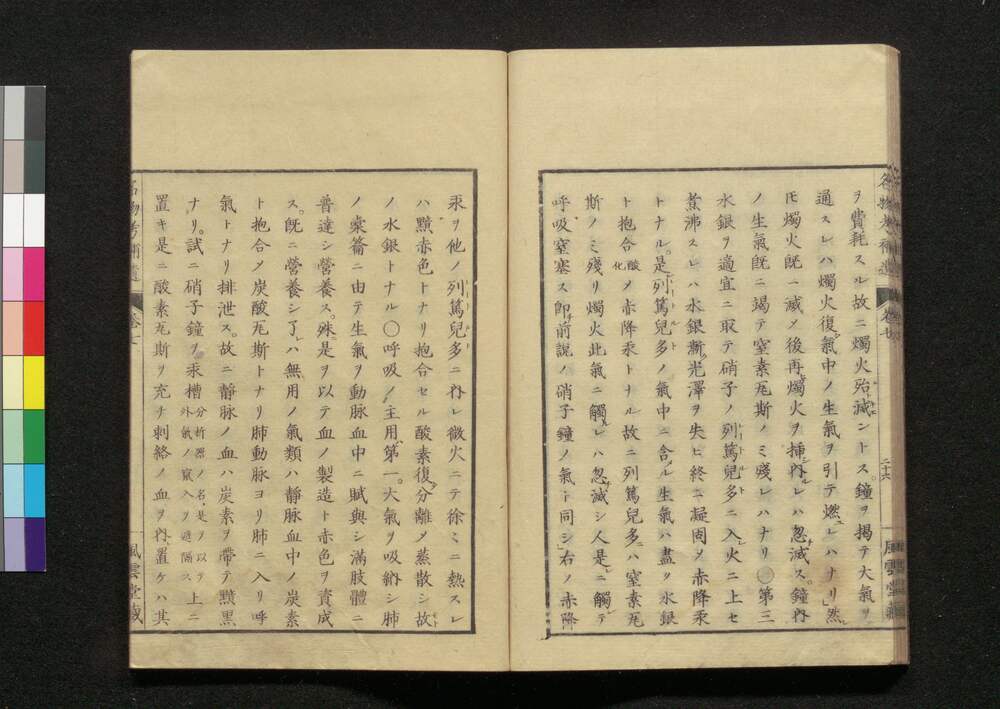 ヲ費耗スル故ニ燭火殆滅ントス鐘ヲ揭テ大氣ヲ
通スレハ燭火復氣中ノ生氣ヲ引テ燃レハナリ然
𪜈燭火既ニ一滅メ後再燭火ヲ挿內レハ忽滅ス。鐘內
ノ生氣既ニ竭テ窒素瓦斯ノミ殘レハナリ○第三
水銀ヲ適宜ニ取テ硝子ノ列篤兒多ニ入火ニ上セ
煑沸スレハ水銀漸光澤ヲ失ヒ終ニ凝固メ赤降汞
トナル。是列篤兒多ノ氣中ニ含ル生氣ハ盡ク水銀
ト抱合酸化メ赤降汞トナル故ニ列篤兒多ハ窒素瓦
斯ノミ殘リ燭火此氣ニ觸レハ忽滅シ人是ニ觸テ
呼吸窒塞ス卽前說ノ硝子鐘ノ氣ト同シ右ノ赤降
名物考補遺 卷七 二十六 風雲堂藏
汞ヲ他ノ列篤兒多ニ內レ微火ニテ徐々ニ熱スレ
ハ黯赤色トナリ抱合セル酸素復分離メ蒸散シ故
ノ水銀トナル○呼吸ノ主用第一。大氣ヲ吸納シ肺
ノ橐籥ニ由テ生氣ヲ動脉血中ニ賦與シ滿肢體ニ
普達シ營養ス。殊是ヲ以テ血ノ製造ト赤色ヲ資成
ス。既ニ營養シ了レハ無用ノ氣類ハ靜脉血中ノ炭素
ト抱合メ炭酸瓦斯トナリ肺動脉ヨリ肺ニ入リ呼
氣トナリ排泄ス。故ニ靜脉ノ血ハ炭素ヲ帶テ黯黑
ナリ。試ニ硝子鐘ヲ汞槽分析器ノ名是ヲ以テ外氣ノ竄入ヲ遮隔ス上ニ
置キ是ニ酸素瓦斯ヲ充テ刺絡ノ血ヲ內置ケハ其
名物考補遺 卷七 風雲堂藏